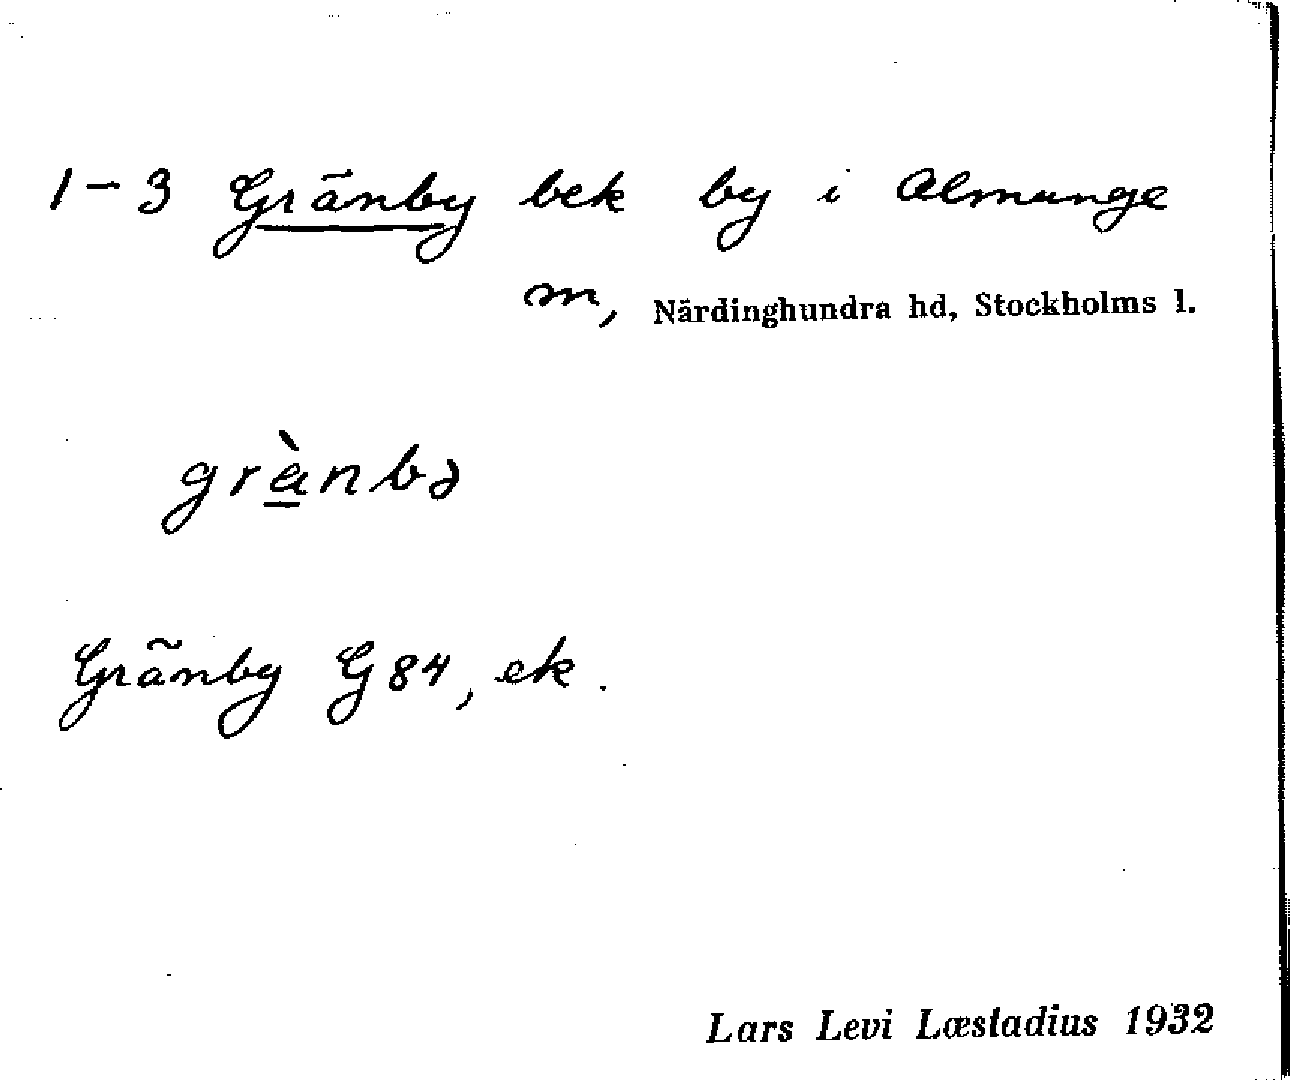 1-3 Gränby bek by i Almunge
m, Närdinghundra hd, Stockholms l.
grä̀nbə
Gränby G 84, ek.
Lars Levi Læstadius 1932